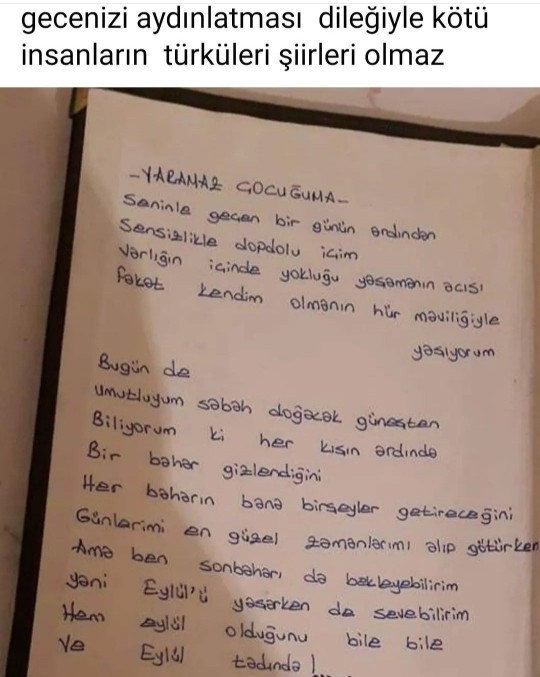 gecenizi aydınlatması dileğiyle kötü
insanların türküleri şiirleri olmaz
-YARAMAZ ÇOCUĞUMA-
Seninle geçen bir günün ardından
Sensizlikle dopdolu içim
Varlığın içinde yokluğu yaşamanın acısı
Fakat kendim olmanın hür maviliğiyle
yaşıyorum
Bugün de
umutluyum sabah doğacak güneşten
Biliyorum ki her kışın ardında
Bir bahar gizlendiğini
Her baharın bana birşeyler getireceğini
Günlerimi en güzel zamanlarımı alıp götürken
Ama ben sonbaharı da bekleyebilirim
yani Eylül'ü yaşarken de sevebilirim
Hem eylül olduğunu bile bile
Ve Eylül tadında!...